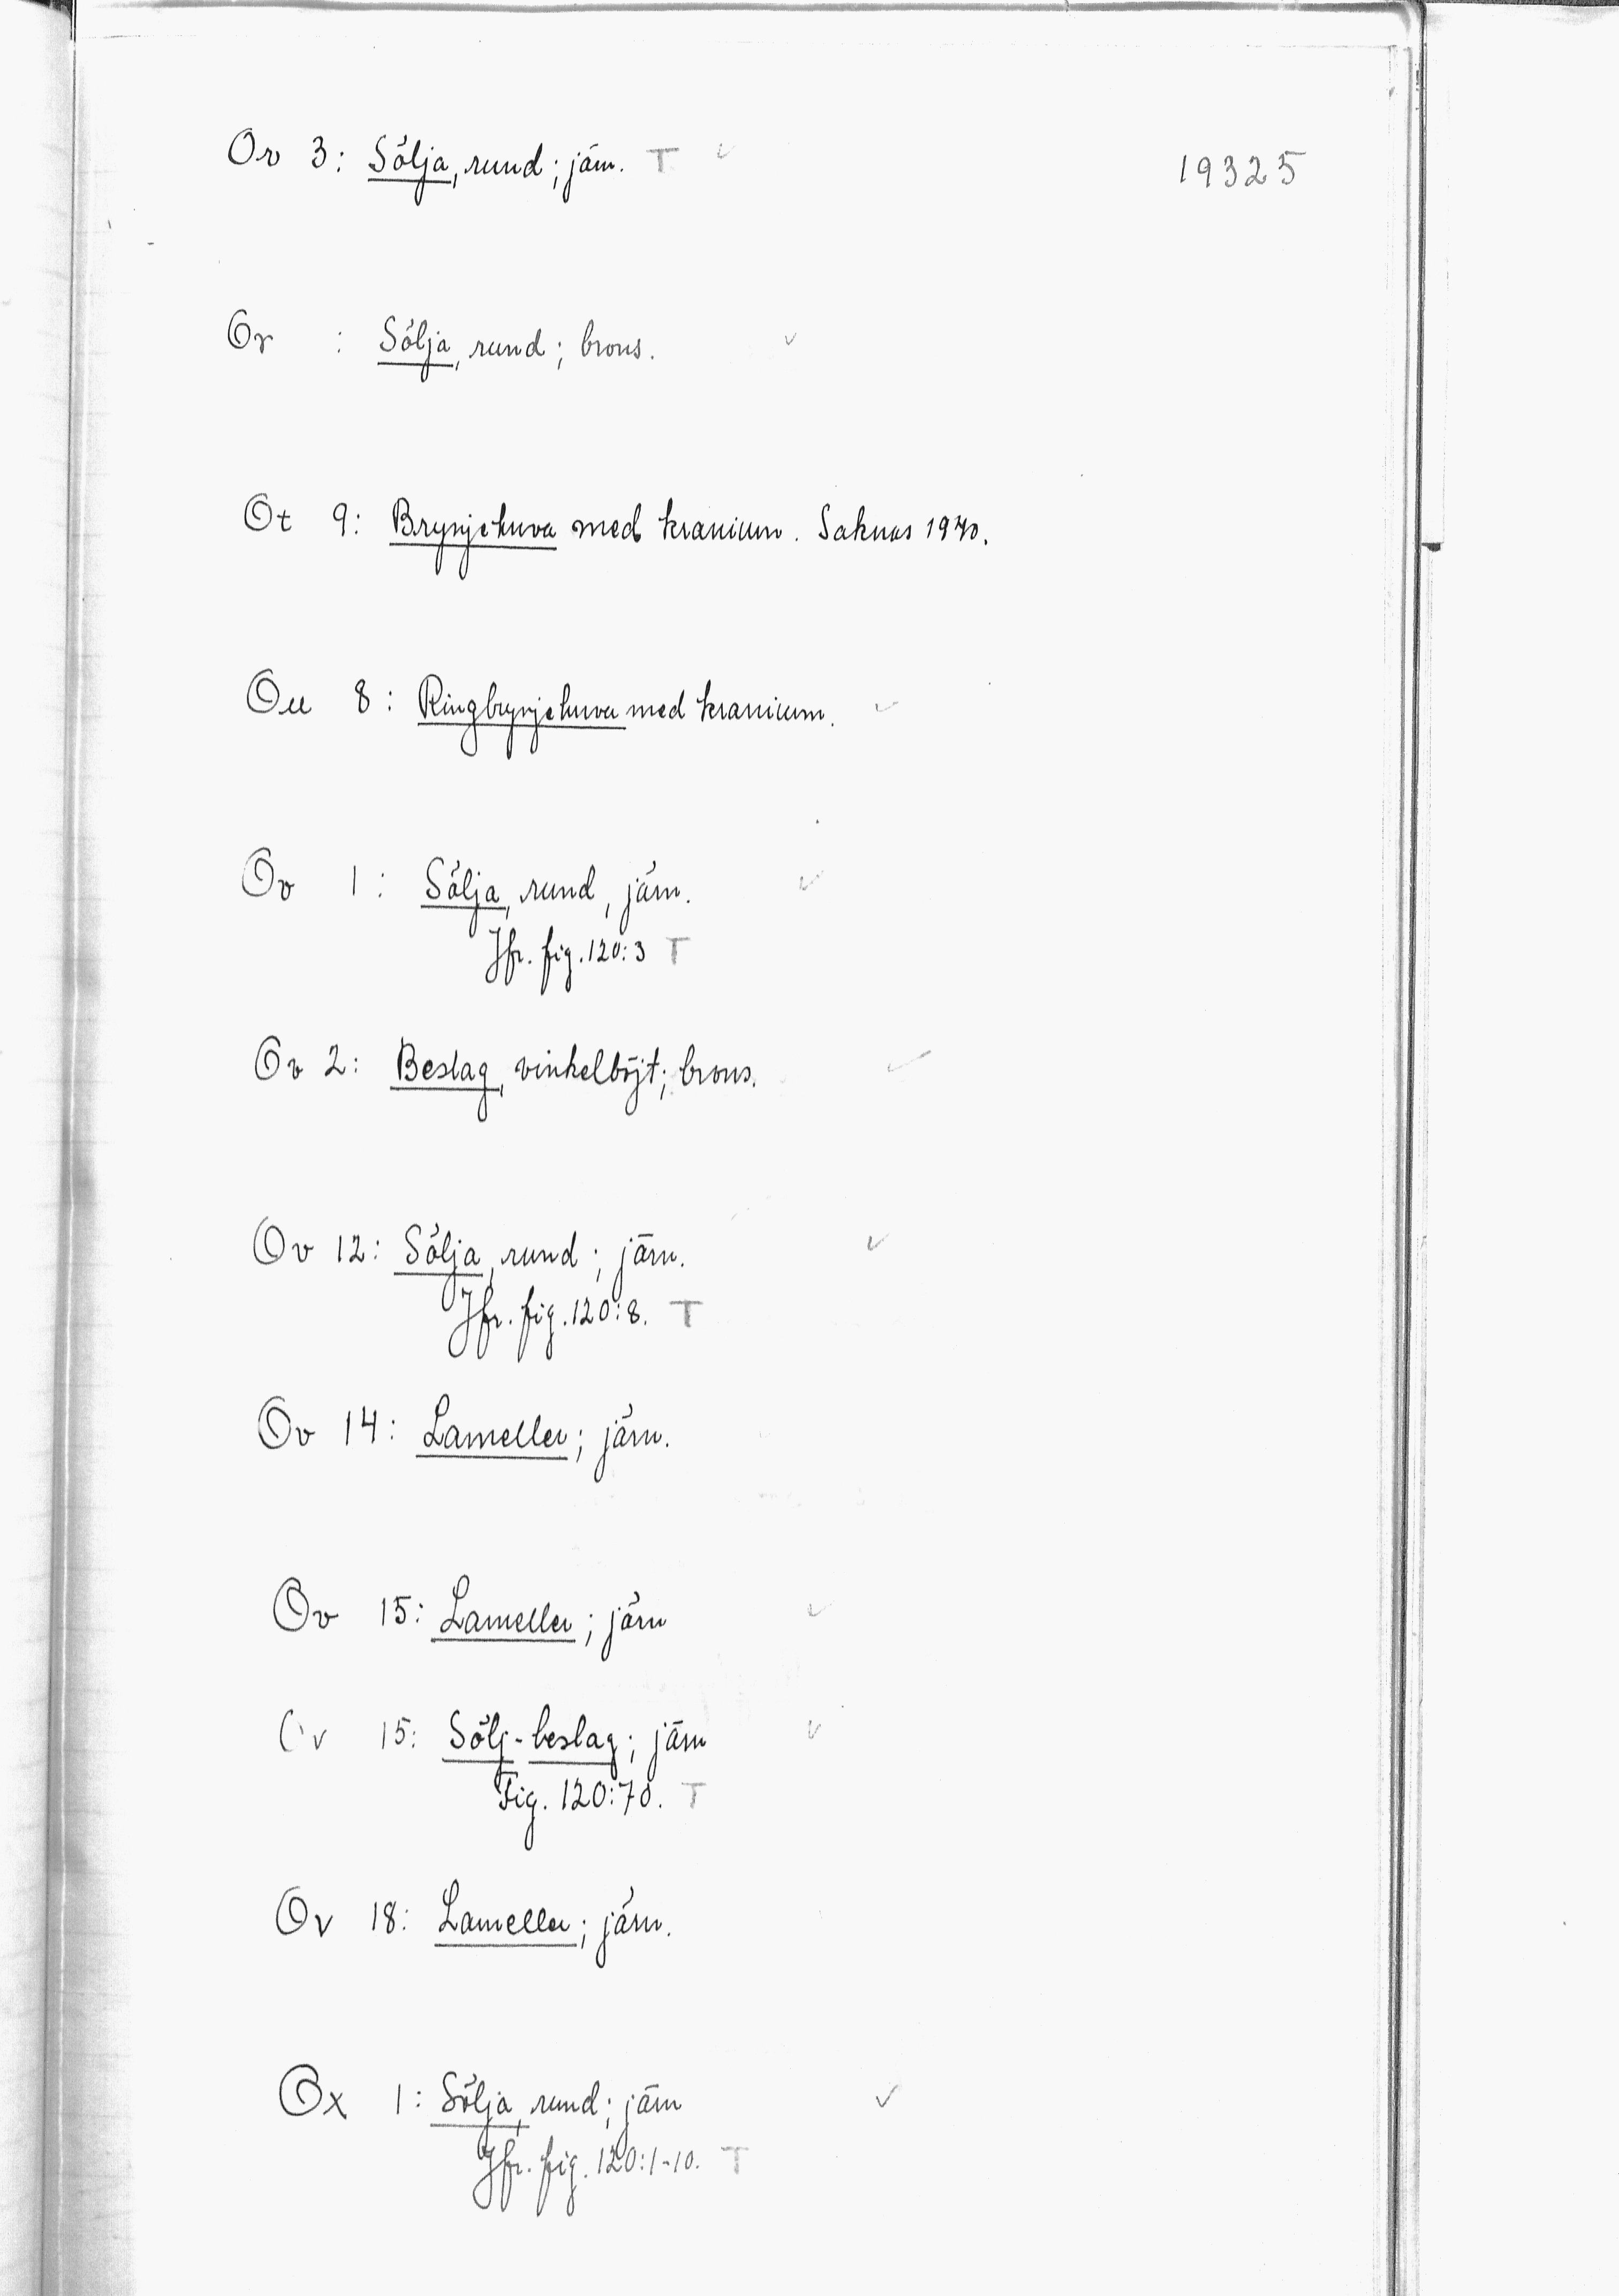 Or 3: Sölja, rund; järn. T ✓
19325
Or : Sölja, rund; brons. ✓
Ot 9: Brynjehuva med kranium. Saknas 1970.
Ou 8: Ringbrynjehuva med kranium. ✓
Ov 1: Sölja, rund, järn. ✓
Jfr. fig. 120:3 T
Ov 2: Beslag, vinkelböjt; brons. ✓
Ov 12: Sölja, rund; järn. ✓
Jfr. fig. 120:8. T
Ov 14: Lameller; järn.
Ov 15: Lameller; järn ✓
Ov 15: Sölj-beslag; järn ✓
Fig. 120:70. T
Ov 18: Lameller; järn.
Ox 1: Sölja, rund; järn ✓
Jfr. fig. 120:1-10. T